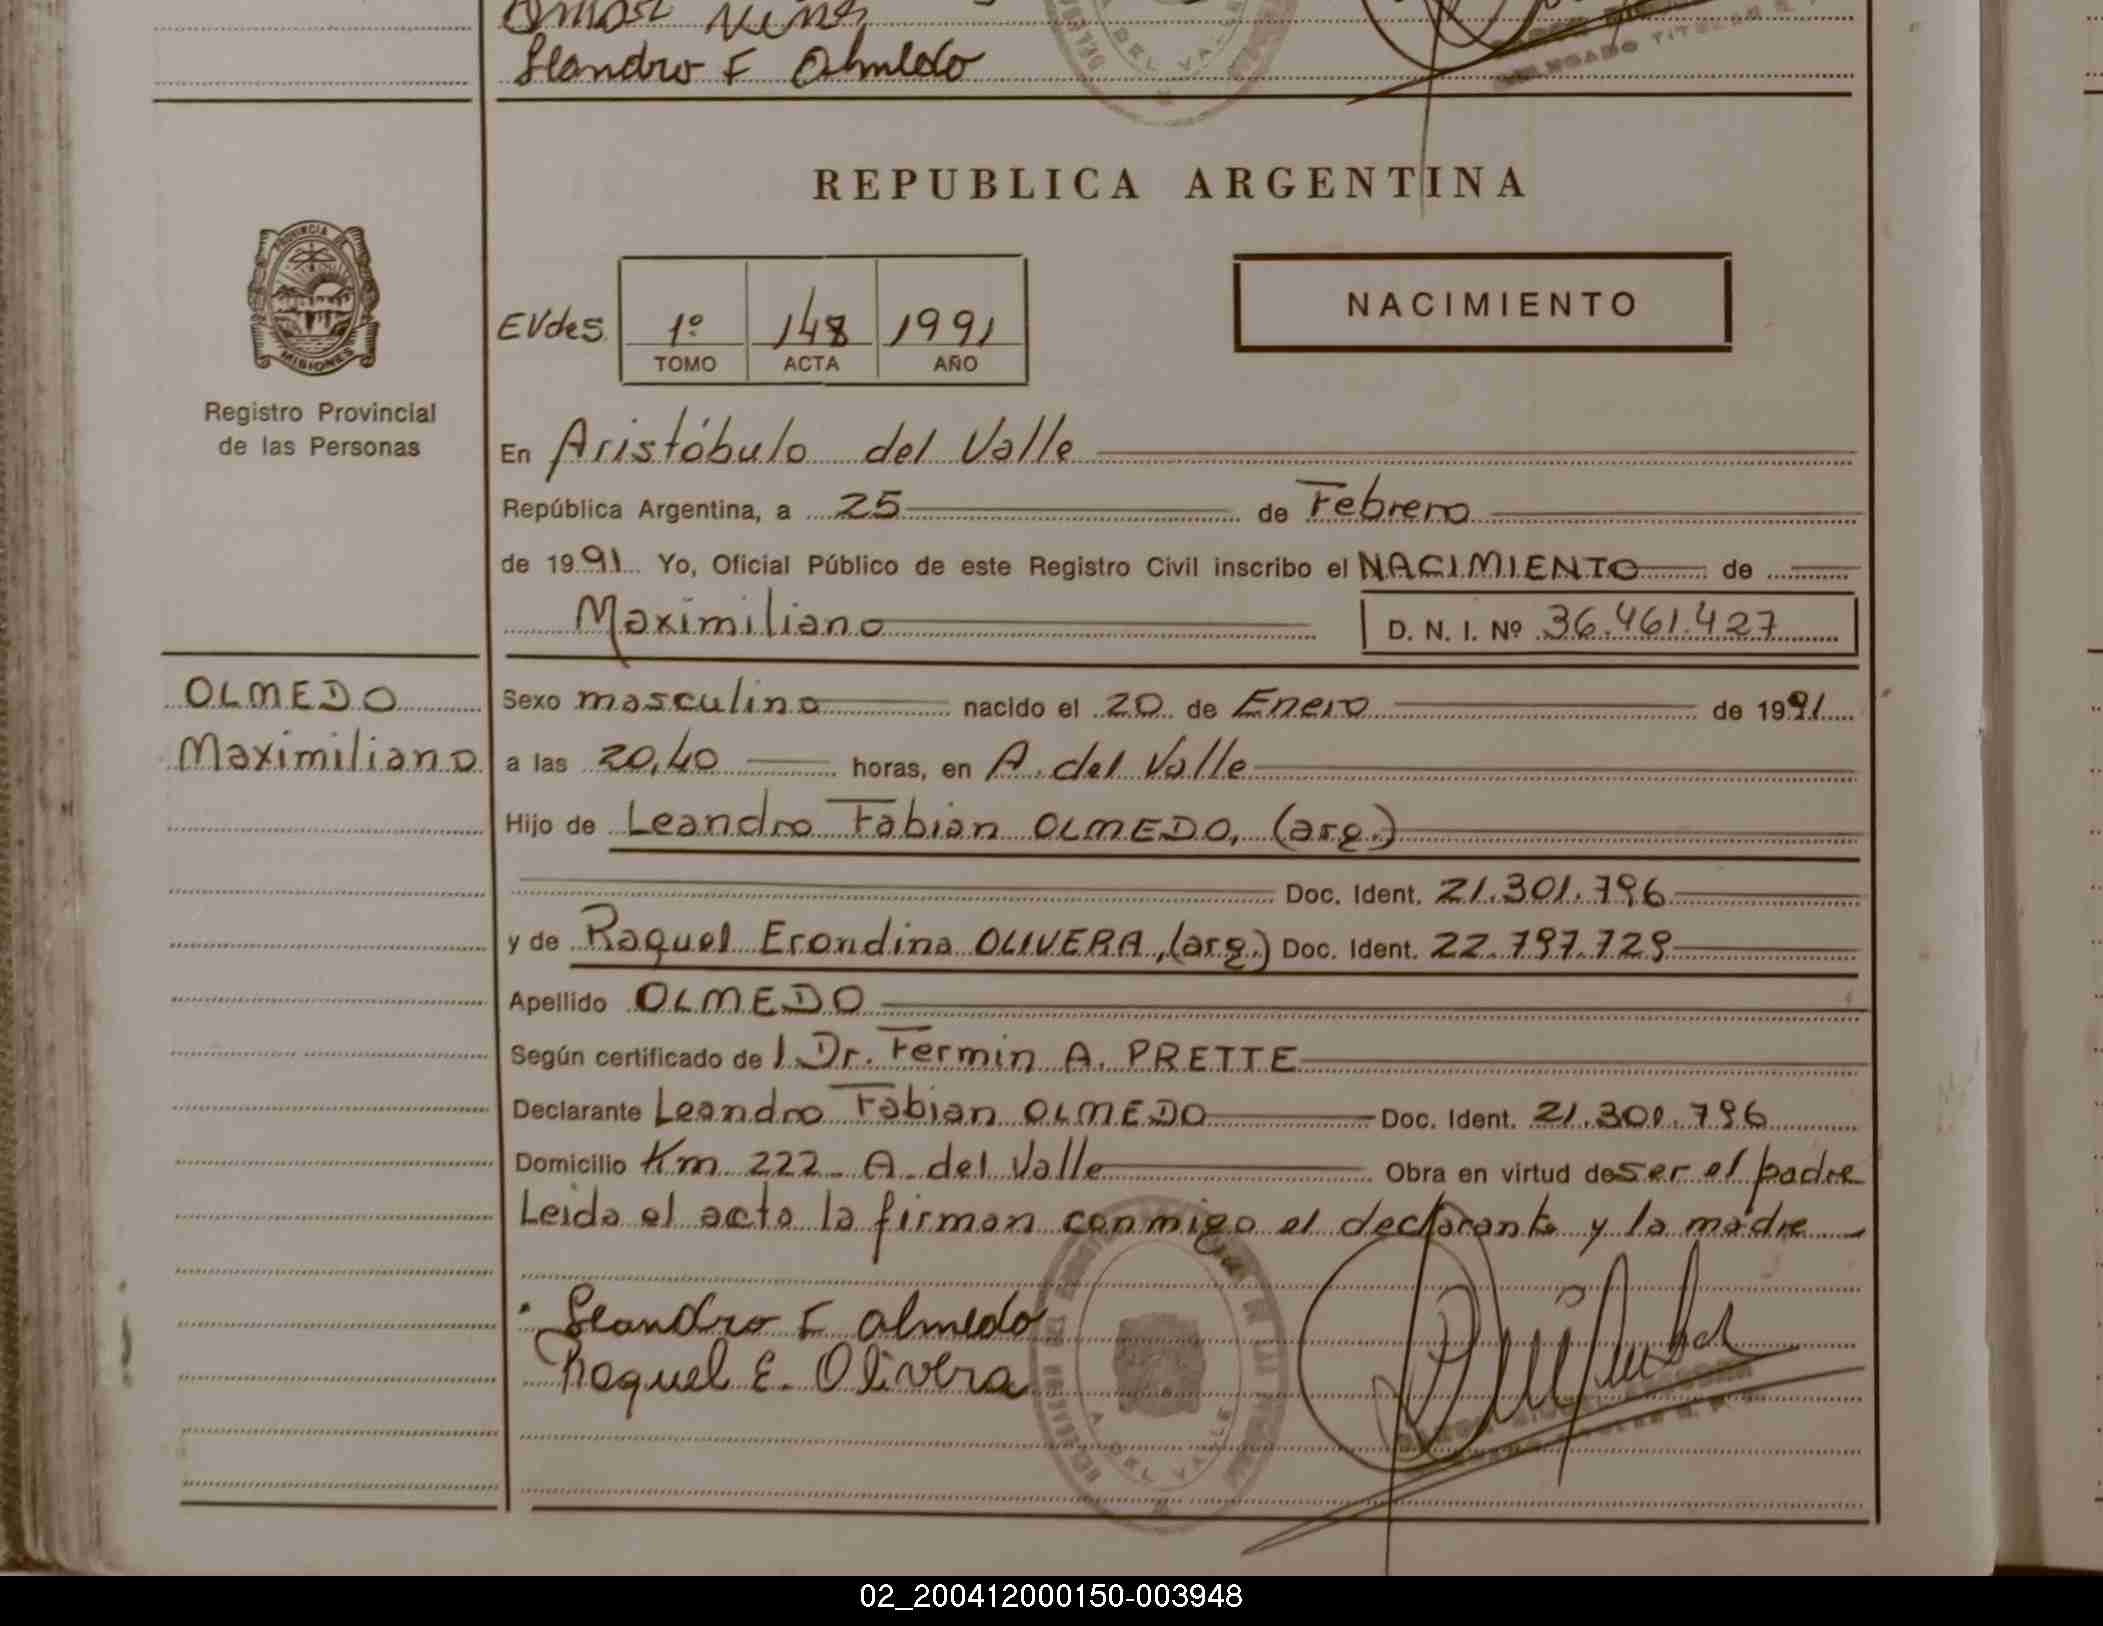 Leandro F Olmedo
DEL VALLE
REPUBLICA ARGENTINA
PROVINCIA DE
MISIONES
Registro Provincial
de las Personas
EVdes. 1º 148 1991
TOMO ACTA AÑO
NACIMIENTO
En Aristóbulo del Valle
República Argentina, a 25 de Febrero
de 1991 Yo, Oficial Público de este Registro Civil inscribo el NACIMIENTO de
Maximiliano D. N. I. Nº 36.461.427
OLMEDO
Maximiliano
Sexo masculino nacido el 20 de Enero de 1991
a las 20,40 horas, en A. del Valle
Hijo de Leandro Fabian OLMEDO, (arg.)
Doc. Ident. 21.301.796
y de Raquel Erondina OLIVERA, (arg.) Doc. Ident. 22.797.729
Apellido OLMEDO
Según certificado de l Dr. Fermin A. PRETTE
Declarante Leandro Fabian OLMEDO Doc. Ident. 21.301.796
Domicilio Km 222 - A. del Valle Obra en virtud de ser el padre
Leida el acta la firman conmigo el declarante y la madre
Leandro F Olmedo
Raquel E. Olivera
A. DEL VALLE
02_200412000150-003948